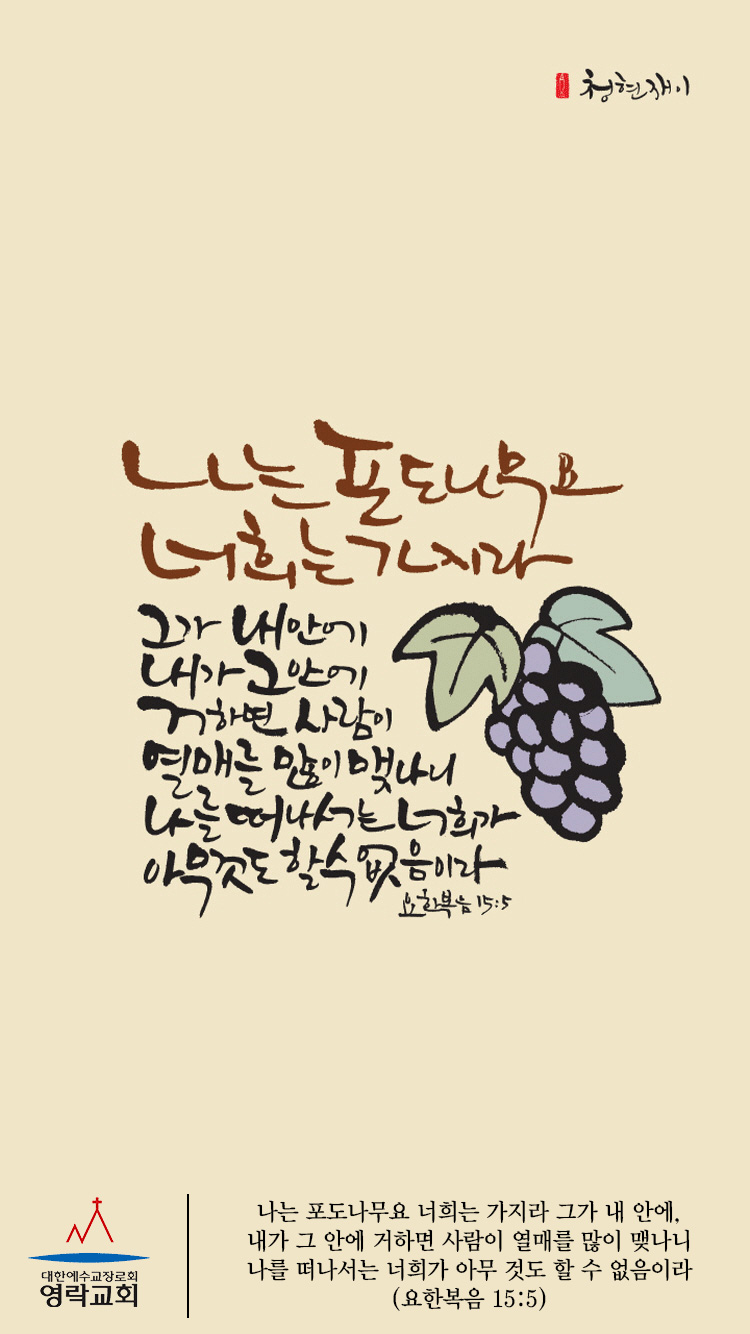 청현재이
나는 포도나무요
너희는 가지라
그가 내안에
내가 그안에
거하면 사람이
열매를 많이 맺나니
나를 떠나서는 너희가
아무것도 할수 없음이라
요한복음 15:5
대한예수교장로회
영락교회
나는 포도나무요 너희는 가지라 그가 내 안에,
내가 그 안에 거하면 사람이 열매를 많이 맺나니
나를 떠나서는 너희가 아무 것도 할 수 없음이라
(요한복음 15:5)